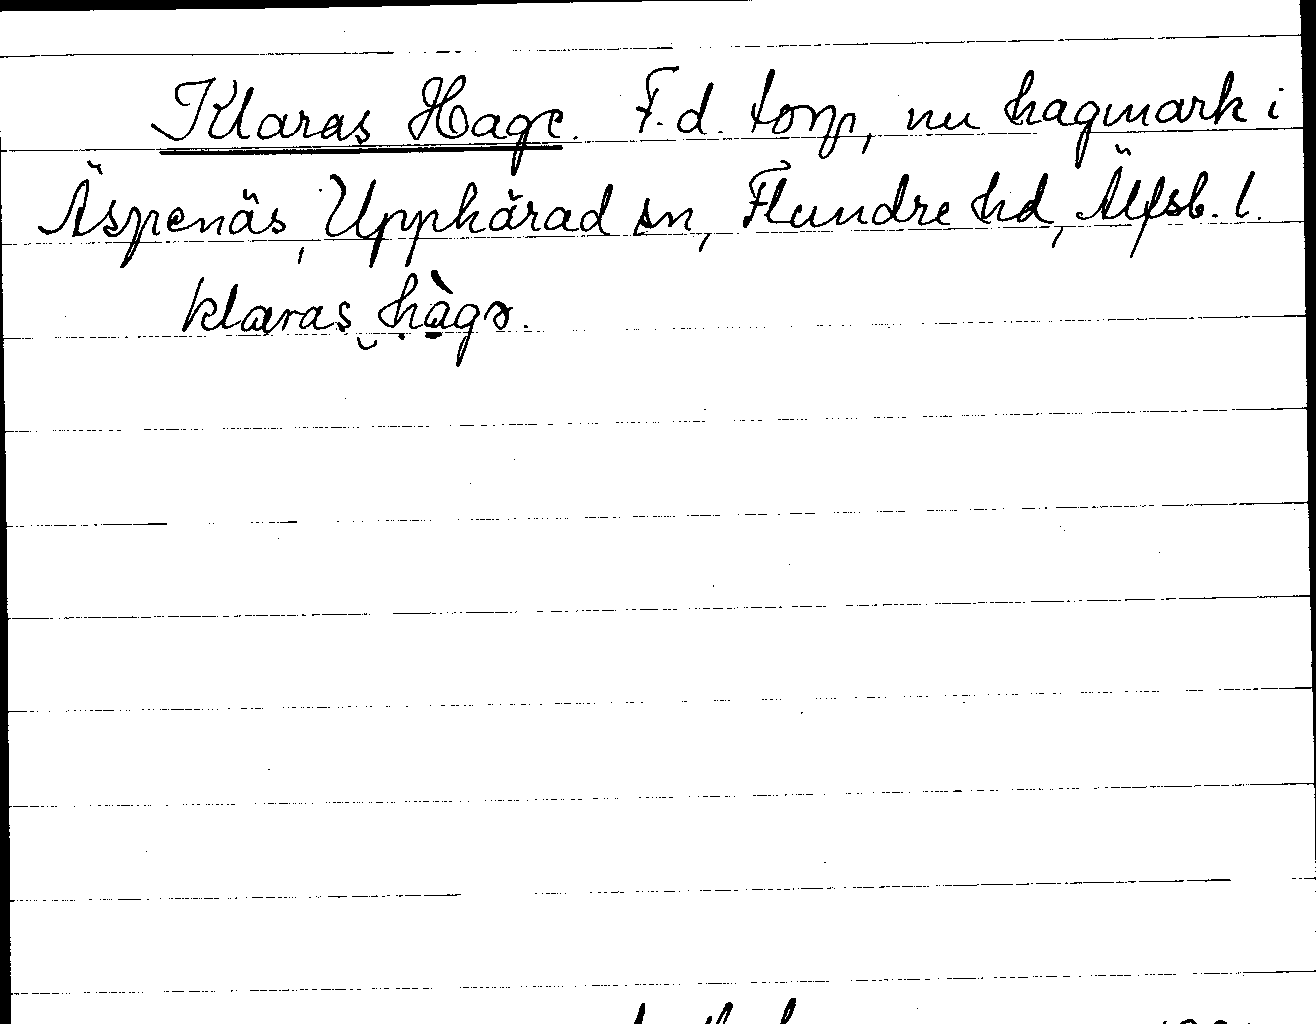 Klaras Hage. F.d. torp, nu hagmark i
Äspenäs, Upphärad sn, Flundre hd, Älfsb. l.
klaras hàgə.